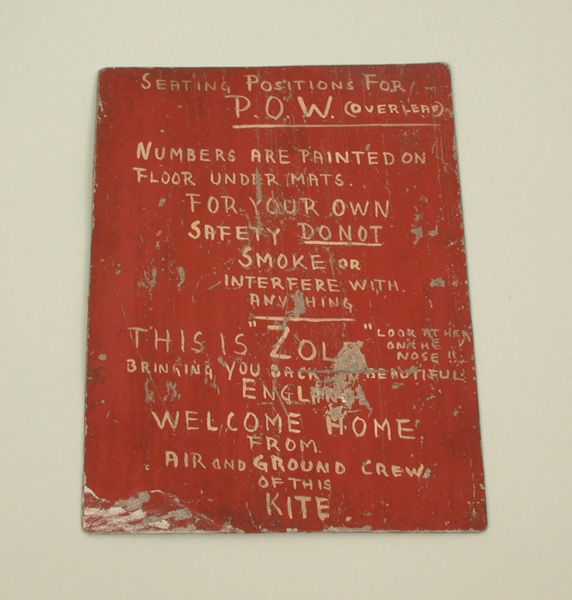 SEATING POSITIONS FOR
P.O.W. (OVERLEAF)
NUMBERS ARE PAINTED ON
FLOOR UNDER MATS.
FOR YOUR OWN
SAFETY DO NOT
SMOKE OR
INTERFERE WITH.
ANYTHING
THIS IS "ZOL "LOOK AT HER
ON THE
NOSE !!
BRINGING YOU BACK BEAUTIFUL
ENGLAN
WELCOME HOME
FROM.
AIR AND GROUND CREWS
OF THIS
KITE